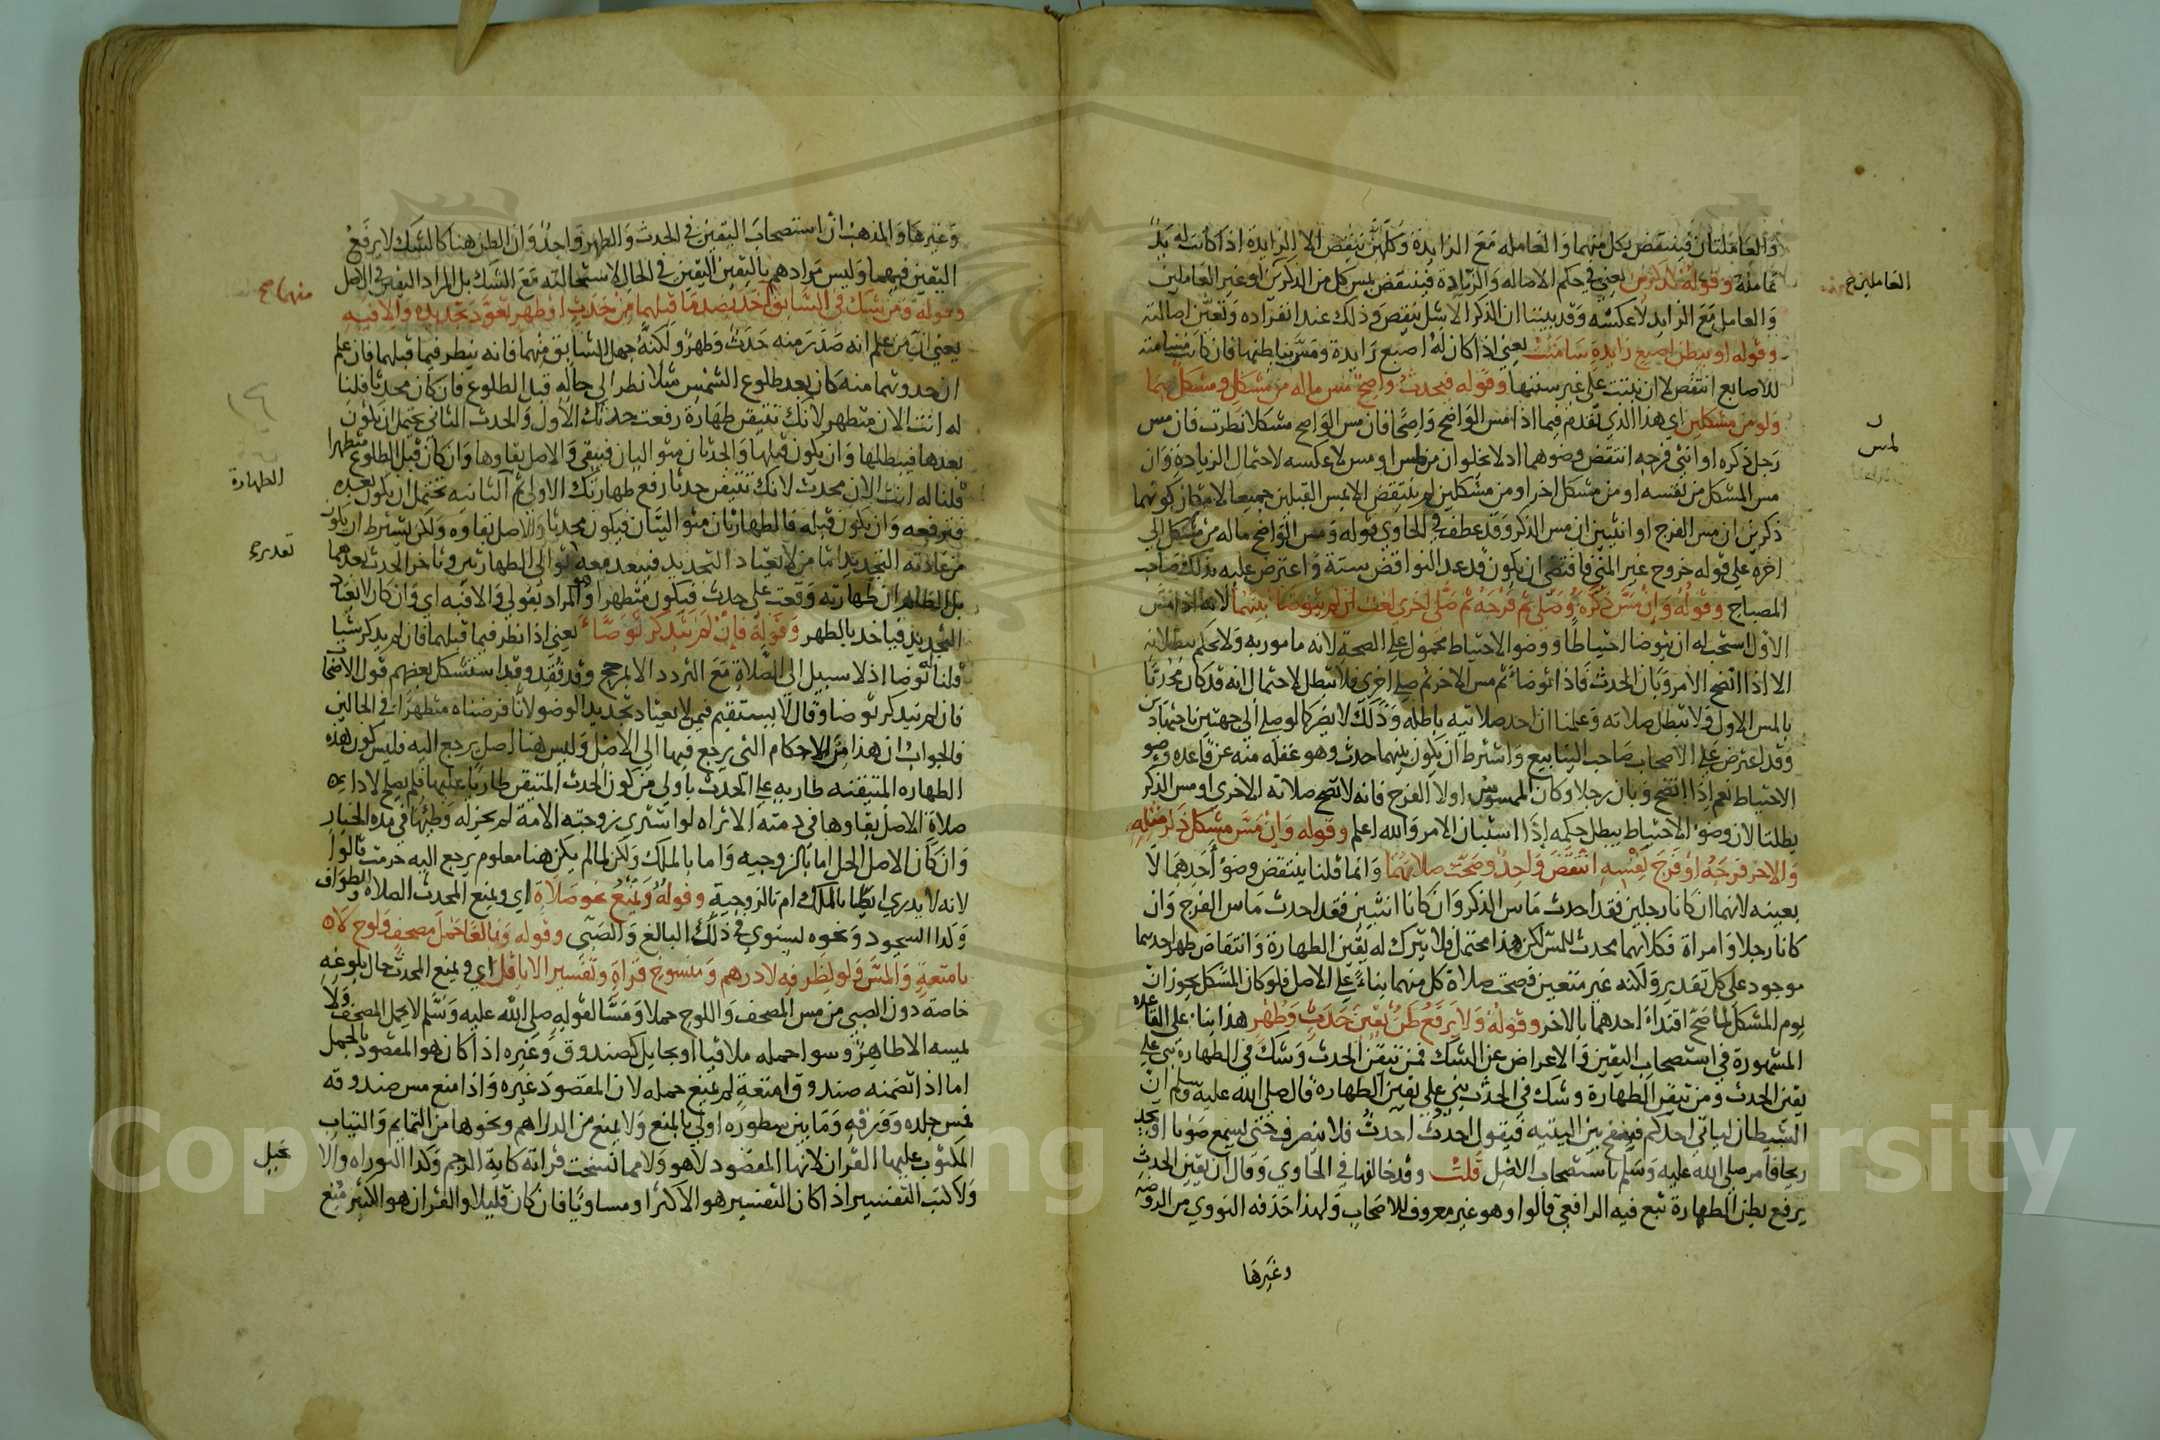 والعاملتان فينتقض بكل منهما والعامله مع الزايدة وكلهن تنقض الا الزايدة اذا كانت له يد
تمامنة وقوله يعني في حكم الاصاله والزيادة فينتقض بمس كل من الذكرين او غير العاملين
والعامل مع الزايد لا عكسه وقد بينا ان الذكر الاشل ينقض وذلك عند انفراده وتعين اصالته
وقوله او ببطن اصبع زايدة سامتت يعني اذا كان له اصبع زايدة ومس بباطنها فان كانت مسامتة
للاصابع انتقض لا ان نبتت على غير سننها وقوله فيحدث واضح مس ماله من مشكل ومشكل بهما
ولو من مشكلين اي هذا الذي تقدم فيما اذا مس الواضح واضحا فان مس الواضح مشكلا نظرت فان مس
رجل ذكره او انثى فرجه انتقض وضوهما اذ لا يخلوان من لمس او مس لا عكسه لاحتمال الزيادة وان
مس المشكل من نفسه او من مشكل اخر او من مشكلين لم ينتقض الا بمس القبلين جميعا لامكان كونهما
ذكرين ان مس الفرج او انثيين ان مس الذكر وقد عطف في الحاوي قوله ومس الواضح ماله من مشكل الى
اخره على قوله خروج غير المني فاقتضى ان يكون قد عد النواقض ستة واعترض عليه بذلك صاحب
المصباح وقوله وان مس ذكره وصلى ثم فرجه ثم صلى اخرى لغت ان لم يتوضا بينهما لانه اذا مس
الاول استحب له ان يتوضا احتياطا ووضو الاحتياط محمول على الصحة لانه مامور به ولا نحكم ببطلانه
الا اذا اتضح الامر وبان الحدث فاذا توضا ثم مس الاخر ثم صلى اخرى فلا تبطل لاحتمال انه قد كان محدثا
بالمس الاول ولا تبطل صلاته وعلمنا ان احد صلاتيه باطله وذلك لا يضر كما لو صلى الى جهتين باجتهادين
وقد اعترض على الاصحاب صاحب الينابيع واشترط ان يكون بينهما حدث وهو غفله منه عن قاعده وضو
الاحتياط نعم اذا اتضح وبان رجلا وكان الممسوس اولا الفرج فانه لا تصح صلاته الاخرى او مس الذكر
بطلتا لان وضو الاحتياط يبطل حكمه اذا استبان الامر والله اعلم وقوله وان مس مشكل ذكر مثله
والاخر فرجه او فرج نفسه انتقض واحد وصحت صلاتهما وانما قلنا ينتقض وضو احدهما لا
بعينه لانهما ان كانا رجلين فقد احدث ماس الذكر وان كانا انثيين فقد احدث ماس الفرج وان
كانا رجلا وامراة فكلاهما محدث للمس لكن هذا محتمل فلا يترك له يقين الطهارة وانتقاض طهر احدهما
موجود على كل تقدير ولكنه غير متعين فصحت صلاة كل منهما بناء على الاصل فلو كان المشكل يجوز ان
يوم المشكل لما صح اقتداء احدهما بالاخر وقوله ولا يرفع ظن يقين حدث وطهر هذا بنا على القاعده
المشهورة في استصحاب اليقين والاعراض عن الشك فمن تيقن الحدث وشك في الطهارة بني على
يقين الحدث ومن تيقن الطهارة وشك في الحدث بني على يقين الطهارة قال صلى الله عليه وسلم ان
الشيطان لياتي احدكم فينفخ بين اليتيه فيقول احدثت احدثت فلا ينصرف حتى يسمع صوتا او يجد
ريحا فامر صلى الله عليه وسلم باستصحاب الاصل قلت وقد خالفها في الحاوي وقال ان يقين الحدث
يرفع بظن الطهارة تبع فيه الرافعي قالوا وهو غير معروف للاصحاب ولهذا حذفه النووي من الروضه
وغيرها
العاملين
لمس
وغيرها والمذهب ان استصحاب اليقين في الحدث والطهر واحد وان الظن هنا كالشك لا يرفع
اليقين فيهما وليس مرادهم باليقين اليقين في الحال لاستحالته مع الشك بل المراد اليقين في الاصل
وقوله ومن شك في السابق اخذ بضد ما قبلهما من حدث او طهر تعود تجديده والا فيه
يعني ان من علم انه صدر منه حدث وطهر ولكنه جهل السابق منهما فانه ينظر فيما قبلهما فان علم
ان حدوثهما منه كان بعد طلوع الشمس مثلا نظر الى حاله قبل الطلوع فان كان محدثا قلنا
له انت الان متطهر لانك تتيقن طهارة رفعت حدثك الاول والحدث الثاني يحتمل ان يكون
بعدها فيبطلها وان يكون قبلها والحدثان متواليان فيبقى والاصل بقاوها وان كان قبل الطلوع متطهرا
قلنا له انت الان محدث لانك تتيقن حدثا رفع طهارتك الاولى ثم الثانيه تحتمل ان يكون بعده
فترفعه وان يكون قبله فالطهارتان متواليتان فيكون محدثا والاصل بقاوه ولكن يشترط ان يكون
من عادته التجديد اما من لا يعتاد التجديد فيبعد معه توالي الطهارتين وتاخر الحدث بعدهما
بل الظاهر ان طهارته وقعت على حدث فيكون متطهرا وهو المراد بقولي والا فبه اي وان كان لا يعتاد
التجديد فياخذ بالطهر وقوله فان لم يتذكر توضا يعني اذا نظر فيما قبلهما فان لم يذكر شيا
قلنا له توضا اذ لا سبيل الى الصلاة مع التردد الا بمرجح وقد فقد وقد استشكل بعضهم قول الاصحاب
فان لم يتذكر توضا وقال لا يستقيم فيمن لا يعتاد تجديد الوضو لانا فرضناه متطهرا في الحالين
والجواب ان هذا من الاحكام التي يرجع فيها الى الاصل وليس هنا اصل يرجع اليه فليس كون هذه
الطهاره المتيقنه طاريه على الحدث باولى من كون الحدث المتيقن طاريا عليها فلم يصلح لادايه
صلاة الاصل بقاوها في ذمته الا تراه لو اشترى زوجته الامه لم يجز له وطئها في مده الخيار
وان كان الاصل الحل اما بالزوجيه واما بالملك ولكن لما لم يكن هنا معلوم يرجع اليه حرمت قالوا
لانه لا يدري ايطا بالملك ام بالزوجية وقوله ويمنع نحو صلاة اي ويمنع المحدث الصلاة والطواف
وكذا السجود ونحوه يستوي في ذلك البالغ والصبي وقوله وبالغا حمل مصحف ولوح لا
بامتعة والمس ولو لظرفه لا درهم ومنسوخ قراة وتفسير الا باقل اي ويمنع المحدث حال بلوغه
خاصة دون الصبي من مس المصحف واللوح حملا ومسا لقوله صلى الله عليه وسلم لا يحمل المصحف ولا
يمسه الا طاهر وسوا حمله ملاقيا او بحايل كصندوق وغيره اذا كان هو المقصود بالحمل
اما اذا تضمنه صندوق امتعة لم يمنع حمله لان المقصود غيره واذا منع مس صندوقه
فمس جلده وورقه وما بين سطوره اولى بالمنع ولا يمنع من الدراهم ونحوها من التمايم والثياب
المكتوب عليها القران لانها المقصود لا هو ولا مما نسخت قراته كاية الرجم وكذا التوراه والا
ولا كتب التفسير اذا كان التفسير هو الاكثر او مساويا فان كان قليلا والقران هو الاكثر منع
منهاج
الطهارة
Copyright © King University